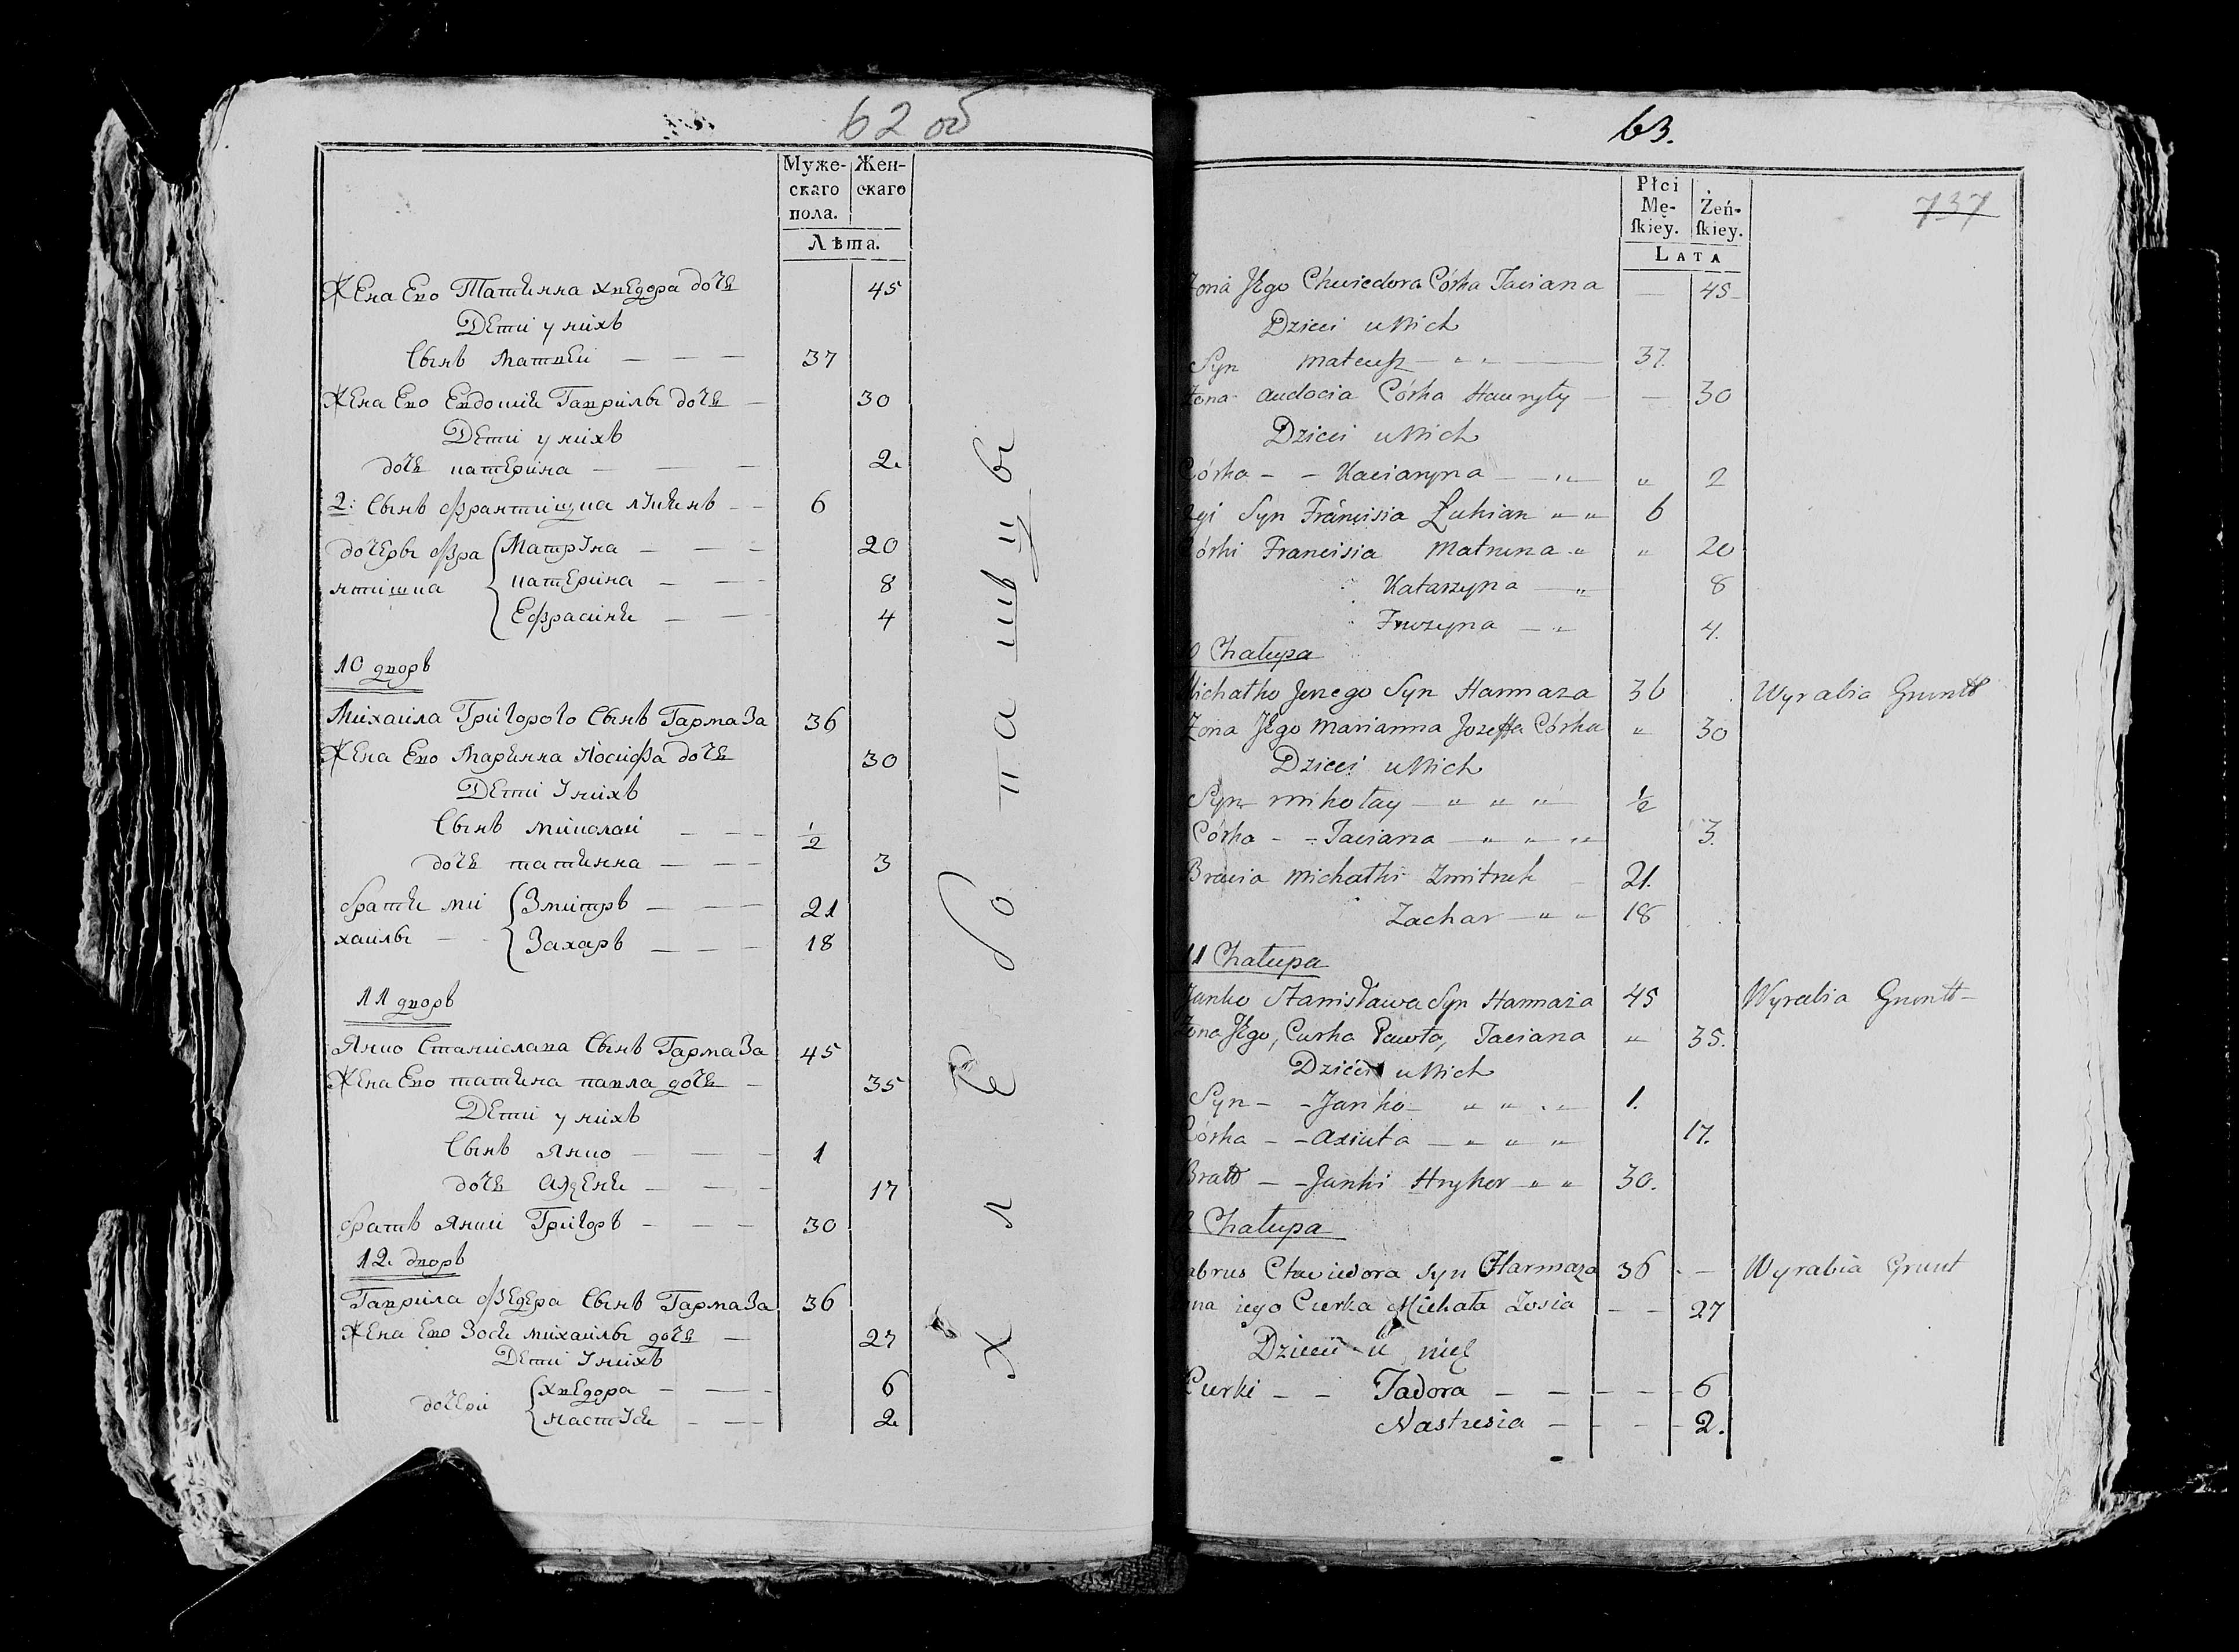 62 об
Муже-
скаго
пола.
Жен-
скаго
Лѣта.
Жена Ево Татьянна Хведора дочь 45
Дети у нихъ
Сынъ Матвей — — — 37
Жена Ево Евдошия Гаврилы дочь — 30
Дети у нихъ
дочь катерина — — — 2
2: Сынъ Францишка лукьянъ — — 6
дочеры фра Матруна — — — 20
нтишка катерина — — — 8
Ефрасинья — — — 4
10 дворъ
Михаила Григорого Сынъ Гармаза 36
Жена Ево Марьянна Иосифа дочь 30
Дети У нихъ
Сынъ миколай — — — 1/2
дочь татьянна — — — 3
братья ми Змитръ — — — 21
хаилы — Захаръ — — — 18
11 дворъ
Янко Станислава Сынъ Гармаза 45
Жена Ево татьяна павла дочь — 35
Дети у нихъ
Сынъ Янко — — — 1
дочь — — — 17
братъ Янки Григоръ — — — 30
12 дворъ
Гаврила Федера Сынъ Гармаза 36
Жена Ево Зося михаилы дочь — 27
Дети У нихъ
дочери Хведора — — — 6
настуся — — — 2
Хлебопашцы
63.
Płci
Mę-
ſkiey.
Żeń-
ſkiey.
LATA
737
Żona Jego Chwiedora Córka Taciana — 45
Dzieci u Nich
Syn Mateusz — „ „ — 37.
Żona Audocia Córka Hawryły — — 30
Dzieci u Nich
Córka — — Kaciaryna — „ „ 2
Syn Franciska Łukian „ „ 6
Córki Franciska Matruna „ „ 20
Katarzyna — „ 8
Fruzyna — „ 4.
10 Chałupa
Michałko Jerzego Syn Harmaza 36 Wyrabia Grunt
Żona Jego Marianna Jozeffa Córka „ 30
Dzieci u Nich
Syn Mikołay — „ „ „ 1/2
Córka — — Taciana — „ „ „ 3.
Bracia Michałki Zmitruk — 21.
Zachar — „ „ 18
11 Chałupa
Janko Stanisława Syn Harmaza 45 Wyrabia Grunt —
Żona Jego, Curka Pawła, Taciana „ 35.
Dzieci u Nich
Syn — — Janko — „ „ „ 1.
Córka — — Axiuta — „ „ „ 17.
Bratt — — Janki Hryhor „ „ 30.
12 Chałupa
Gabrus Chwiedora Syn Harmaza 36 — — Wyrabia Grunt
Żona iego Curka Michała Zosia — — 27
Dzieci u nich
Curki — — Tadora — — — — 6
Nastusia — — — — 2.